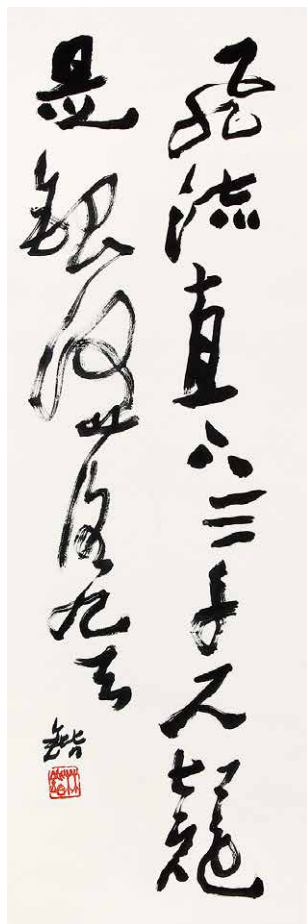 飛流直下三千尺疑
是銀河落九天
鍇